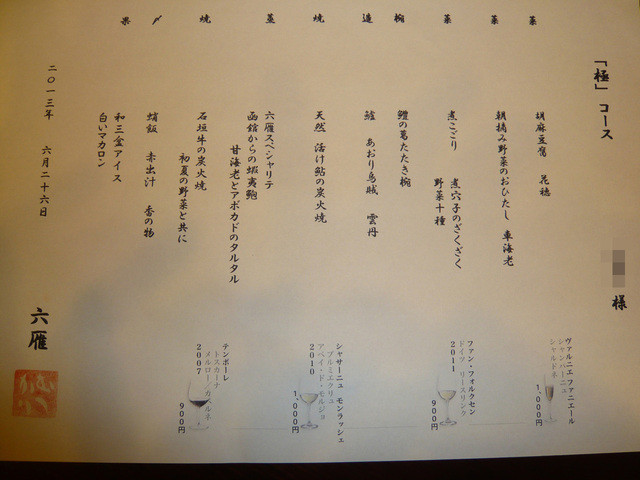 「極」コース
様
菜
胡麻豆腐 花穂
菜
朝摘み野菜のおひたし 車海老
菜
煮こごり 煮穴子のざくざく
野菜十種
椀
鱧の葛たたき椀
造
鱸 あおり烏賊 雲丹
焼
天然 活け鮎の炭火焼
蒸
六雁スペシャリテ
函館からの蝦夷鮑
甘海老とアボカドのタルタル
焼
石垣牛の炭火焼
初夏の野菜と共に
〆
蛸飯 赤出汁 香の物
果
和三盆アイス
白いマカロン
二〇一三年 六月二十六日
六雁
ヴァルニエ ファニエール
シャンパーニュ
シャルドネ
1,000円
ファン・フォルクセン
ドイツ リースリンク
2011
900円
シャサーニュ モンラッシェ
プルミエクリュ
アベイ・ド・モルジョ
2010
1,000円
テンポーレ
トスカーナ
2007
900円